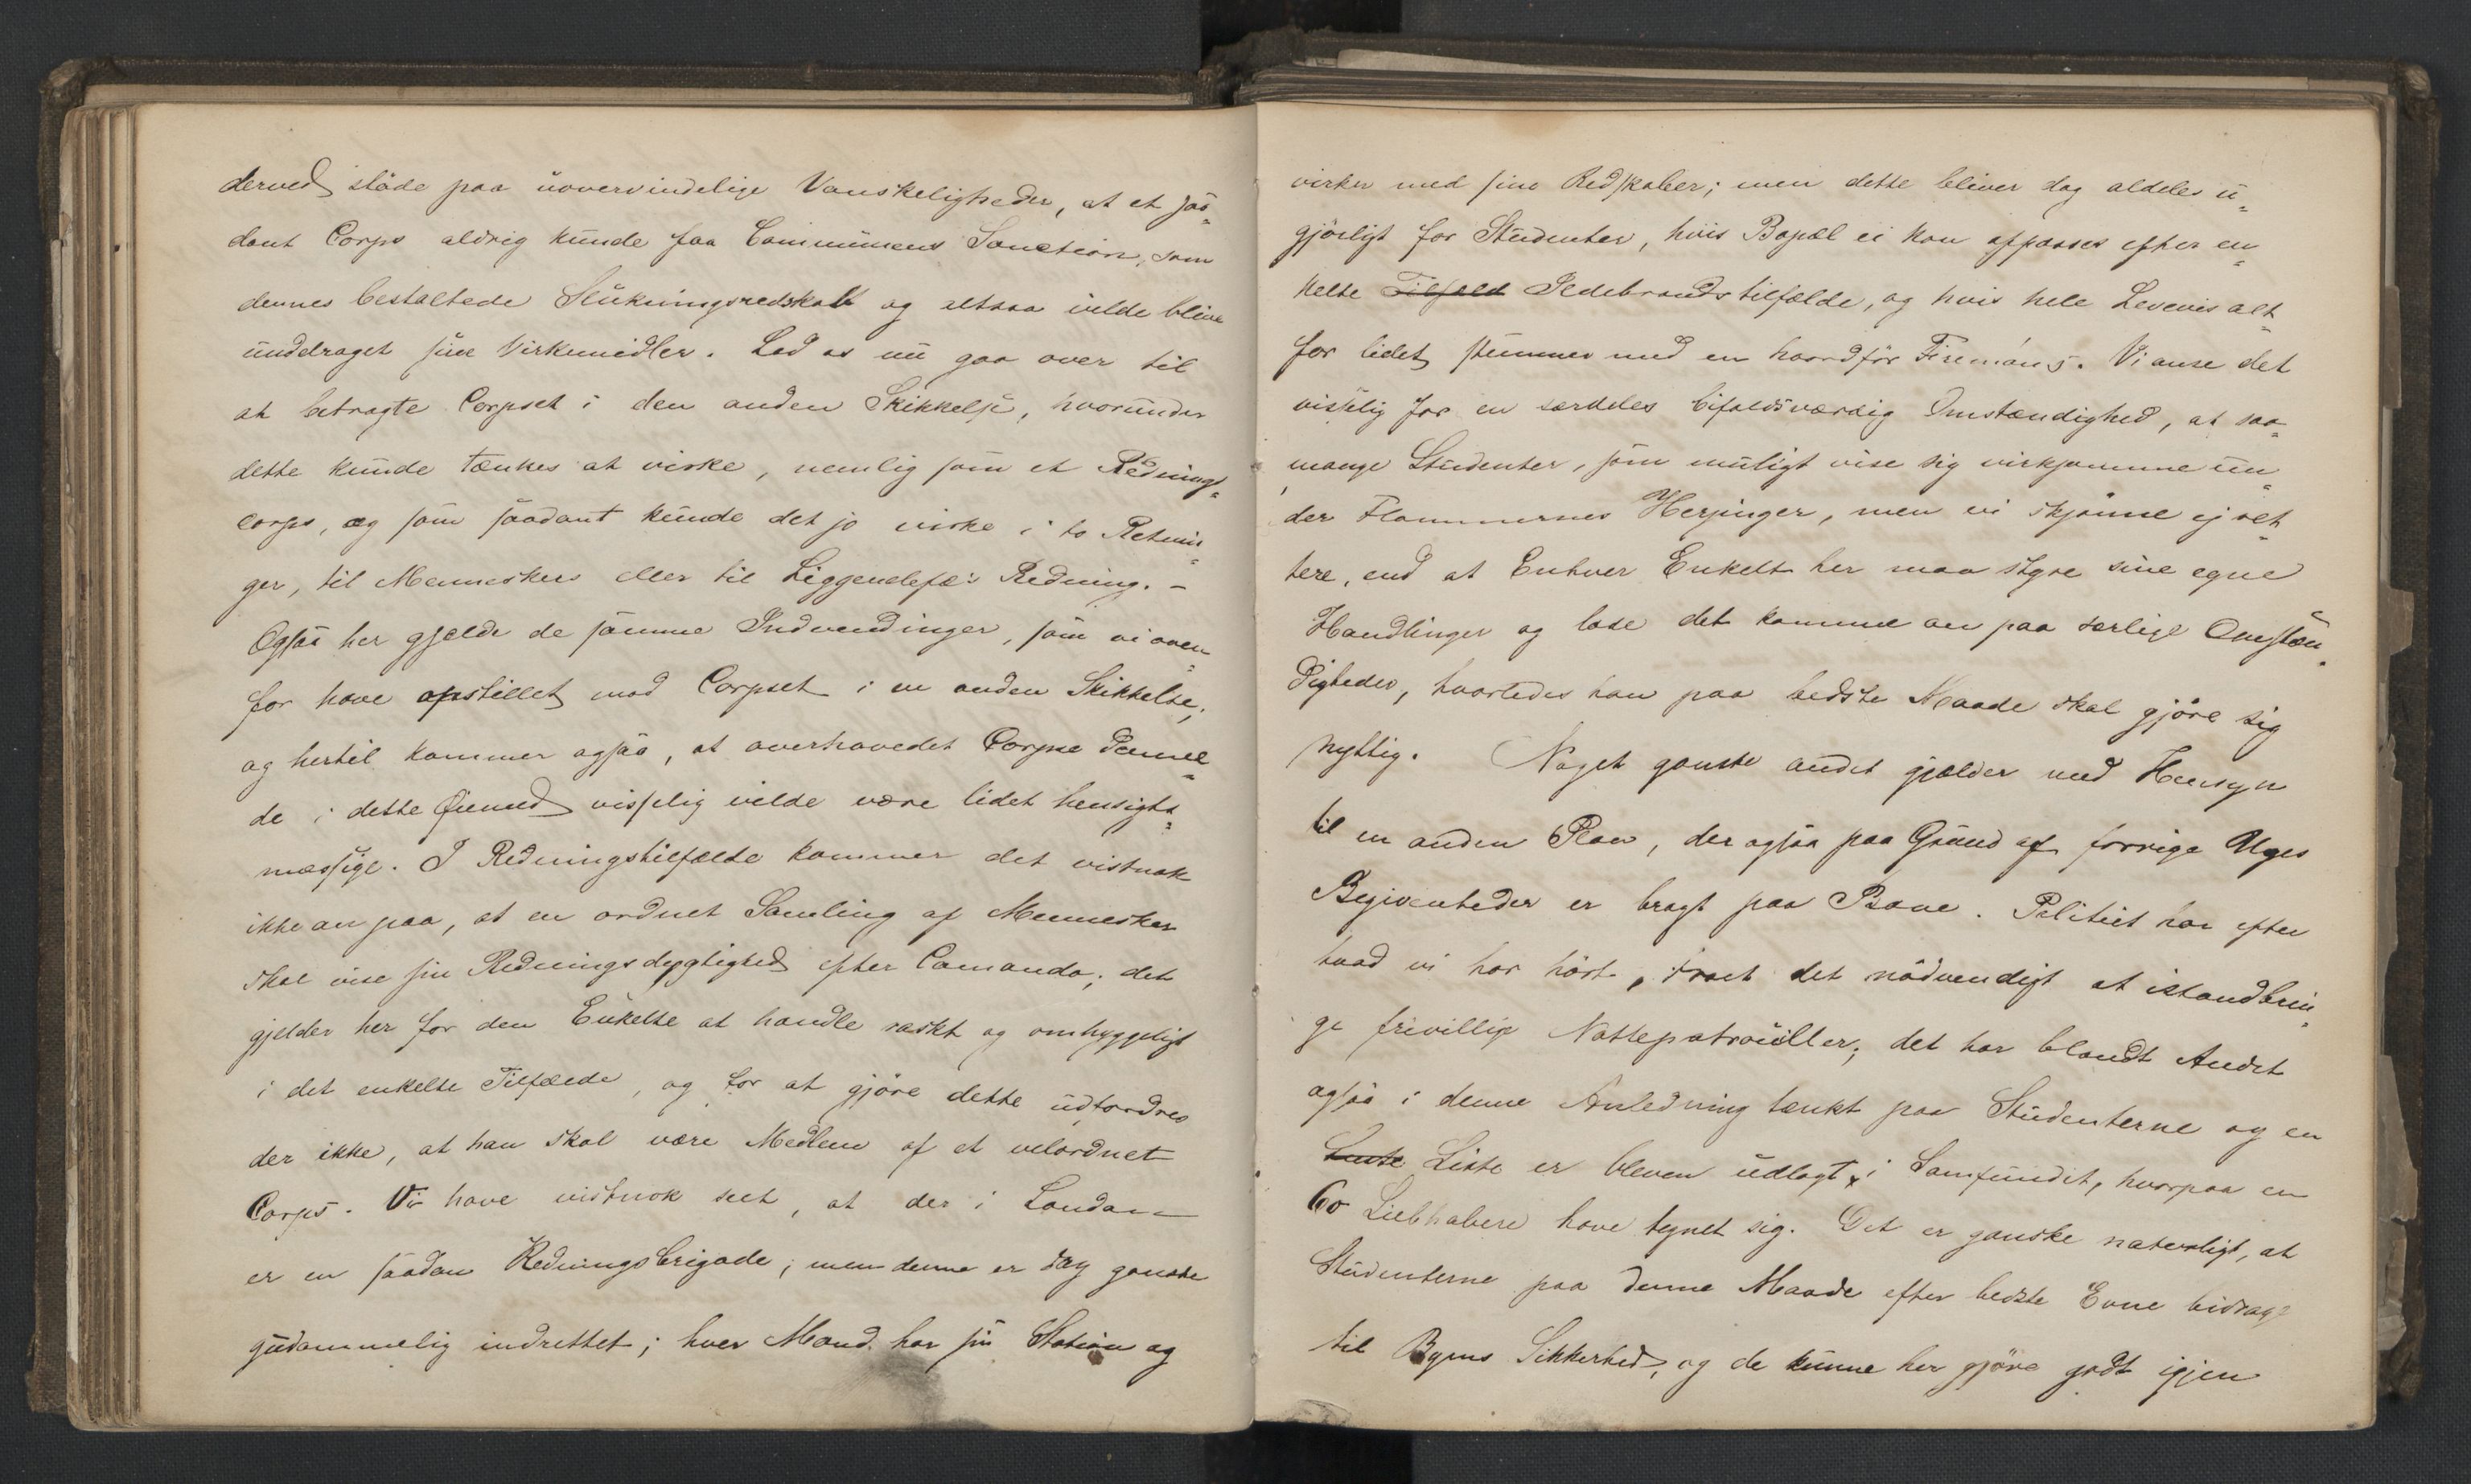 derved støde paa uovervindelige Vanskeligheder, at et saa=
dant Corps aldrig kunde faa Communens Sanction, som
dennes bestaltede Slukningsredskab og altsaa vilde blive
unddraget sine Virkemidler. Lad os nu gaa over til
at betragte Corpset i den anden Skikkelse, hvorunder
dette kunde tænkes at virke, nemlig som et Rednings=
corps, og som saadant kunde det jo virke i to Retnin=
ger, til Menneskers eller til Liggendefæ's Redning. –
Ogsaa her gjælde de samme Indvendinger, som vi oven=
for have opstillet mod Corpset i en anden Skikkelse;
og hertil kommer ogsaa, at overhovedet Corpse dannel=
de i dette Øiemed visselig vilde være lidet hensigts=
mæssige. I Redningstilfælde kommer det vistnok
ikke an paa, at en ordnet Samling af Mennesker
skal vise sin Redningsdygtighed efter Comando; det
gjelder her for den Enkelte at handle raskt og omhyggeligt
i det enkelte Tilfælde, og for at gjöre dette udfordres
der ikke, at han skal være Medlem af et velordnet
Corps. Vi have vistnok seet, at der i London
er en saadan Redningsbrigade; men denne er dog ganske
gudommelig indrettet; hver Mand har sin Station og
virker med sine Redskaber; men dette bliver dog aldeles u=
gjörligt for Studenter, hvis Bopæl ei kan afpasses efter en=
kelte Tilfæld Ildebrandstilfælde, og hvis hele Levevis alt=
for lidet stemmer med en haardför Firemans. Vi anse det
visselig for en særdeles bifaldsværdig Omstændighed, at saa=
mange Studenter, som muligt vise sig virksomme un=
der Flammernes Herjinger, men vi skjönne ej ret=
tere, end at Enhver Enkelt her maa styre sine egne
Handlinger og lade det komme an paa særlige Omstæn=
digheder, hvorledes han paa bedste Maade skal gjöre sig
nyttig. Noget ganske andet gjælder med Hensyn
til en anden Plan, der ogsaa paa Grund af forrige Uges
Begivenheder er bragt paa Bane. Politiet har efter
hvad vi har hört, troet det nödvendigt at istandbrin=
ge frivillige Nattepatrouiller; det har blandt Andet
ogsaa i denne Anledning tænkt paa Studenterne og en
Liste er bleven udlagt i Samfundet, hvorpaa en
60 Liebhabere have tegnet sig. Det er ganske naturligt, at
Studenterne paa denne Maade efter bedste Evne bidrage
til Byens Sikkerhed, og de kunne her gjöre godt igjen